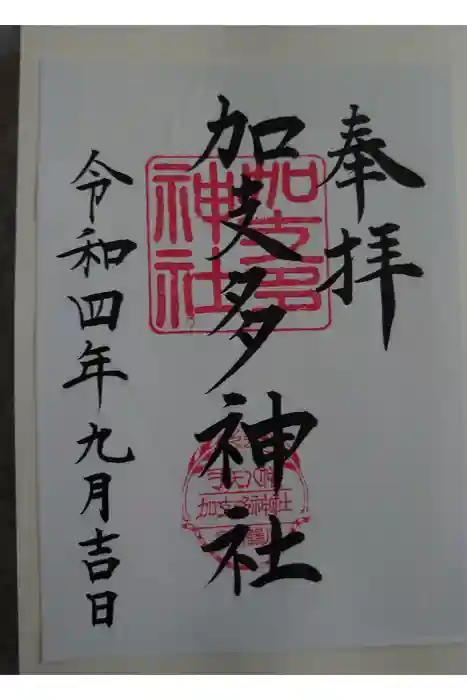 奉拝
加支多神社
令和四年九月吉日
加支多
神社
加支多神社